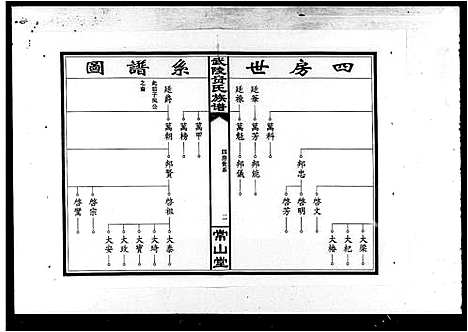 四房世
廷華
廷祿
萬科
萬芳
萬魁
邦忠
邦能
邦儀
啓文
啓明
啓芳
大梁
大杞
大椿
武陵氏族譜
四房世系
二
常山堂
系譜圖
廷爵
萬甲
萬榜
萬朝
邦賢
啓祖
啓宗
啓鸞
大泰
大寶
大政
大安